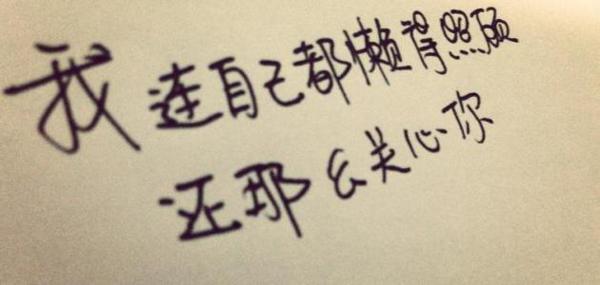 我连自己都懒得照顾
还那么关心你